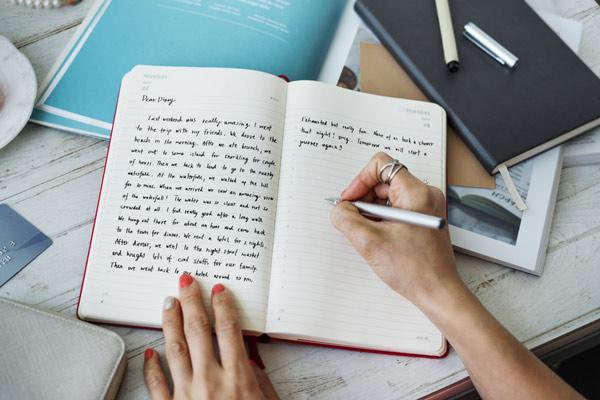 Dear Diary,
Last weekend was really amazing. I went
to the trip with my friends. We drove to the
beach in the morning. After we ate brunch, we
went out to some island for snorkling for couple
of hours. Then we back to land to go to the nearby
waterfalls. At the waterfalls, we walked up the hill
for 30 mins. When we arrived we saw an amazing view
of the waterfall! The water was so clear and not so
crowded at all. I felt really good after a long walk.
We hung out there for about an hour and came back
to the town for dinner. We rent a hotel for 2 nights.
After dinner, we went to the night street market
and bought lots of cool stuffs for our family.
Then we went back to hotel around 10 pm.
Exhausted but really fun. None of us took a shower
that night! Tomorrow we will start a
journey again!